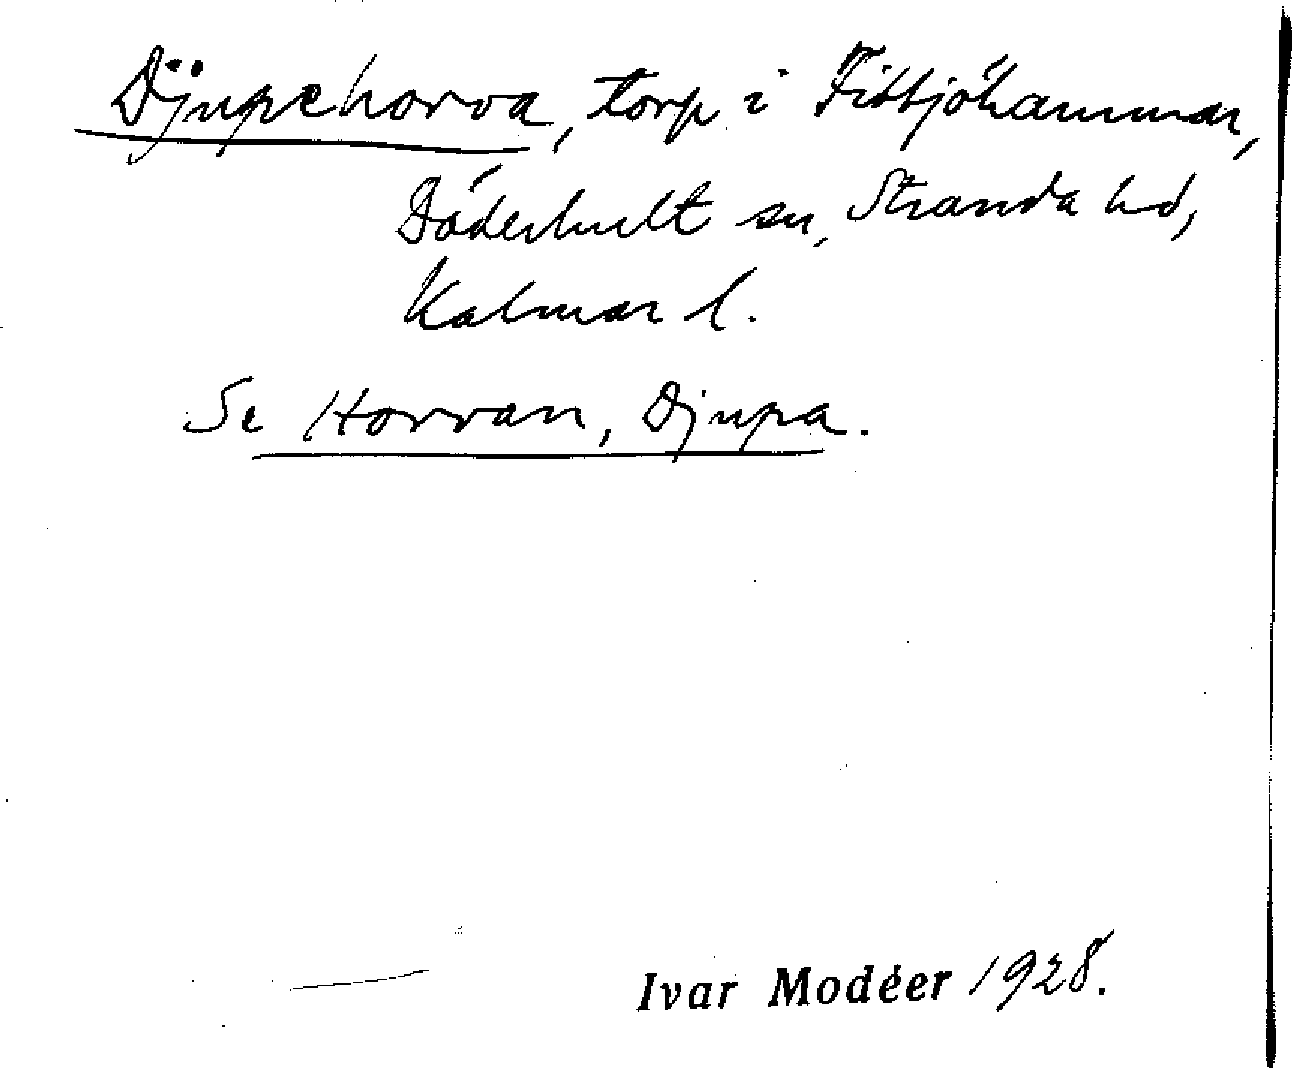 Djupehorva, torp i Fittjöhammar,
Döderhult sn, Stranda hd,
Kalmar l.
Se Horvan, Djupa.
Ivar Modéer 1928.